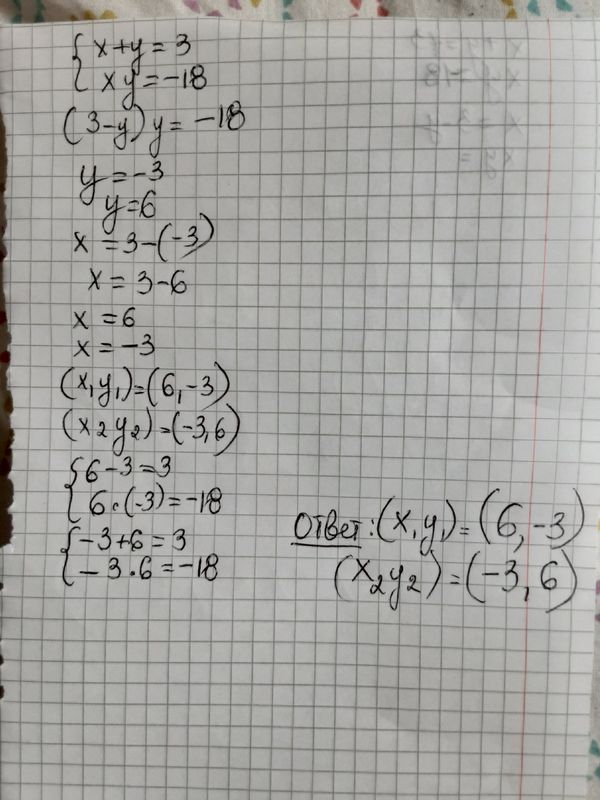 x+y=3
xy=-18
(3-y)y=-18
y=-3
y=6
x=3-(-3)
x=3-6
x=6
x=-3
(x₁y₁)=(6,-3)
(x₂y₂)=(-3,6)
6-3=3
6·(-3)=-18
-3+6=3
-3·6=-18
Ответ: (x₁y₁)=(6,-3)
(x₂y₂)=(-3,6)